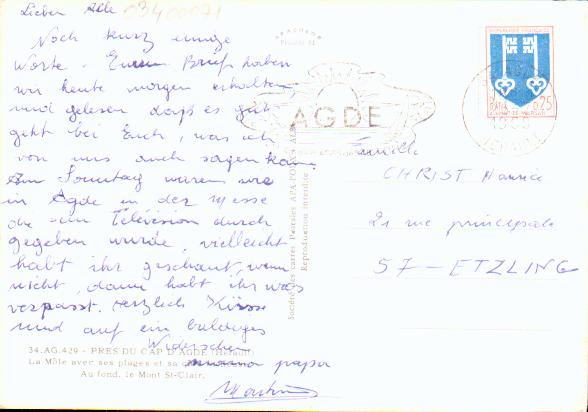 Lieber Alle
03400071
Noch kurz einige
Worte. Euren Brief haben
wir heute morgen erhalten
und gelesen dass es gut
geht bei Euch, was ich
von uns auch sagen kann
Am Sonntag waren wir
in Agde in der Messe
die vom Télévision durch
gegeben wurde, vielleicht
habt ihr geschaut, wenn
nicht, dann habt ihr was
verpasst. Herzlich Küsse
und auf ein baldiges
Widersehen
papa
34.AG.429 - PRES DU CAP D'AGDE (Hérault)
La Môle avec ses plages et sa
Au fond, le Mont St-Clair.
APA-POUX
Société des cartes Postales APA-POUX ALBI
Reproduction interdite
AGDE
REPUBLIQUE FRANÇAISE
0,25
MONT-DE-MARSAN
Famille
CHRIST Maurice
21 rue principale
57 - ETZLING